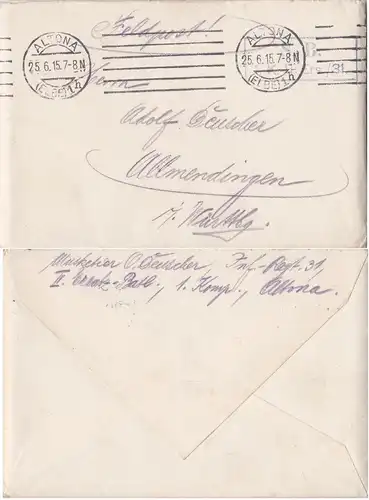 Feldpost!
ALTONA
25.6.15.7-8N
(ELBE) 1 h
ALTONA
25.6.15.7-8N
(ELBE) 1 h
Herrn
Adolf Deuscher
Allmendingen
i/ Württbg.
Musketier O. Deuscher, Inf.-Regt. 31,
II. Ersatz-Batl., 1. Komp., Altona.